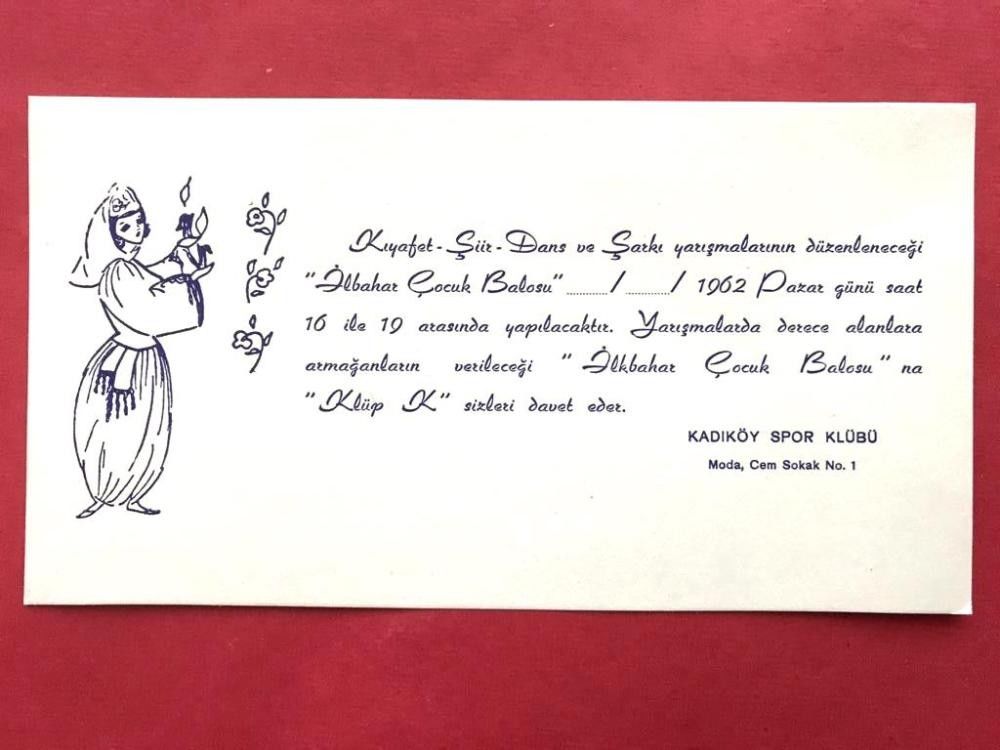 Kıyafet - Şiir - Dans ve Şarkı yarışmalarının düzenleneceği
"İlbahar Çocuk Balosu" ......../......../ 1962 Pazar günü saat
16 ile 19 arasında yapılacaktır. Yarışmalarda derece alanlara
armağanların verileceği "İlkbahar Çocuk Balosu" na
"Klüp K" sizleri davet eder.
KADIKÖY SPOR KLÜBÜ
Moda, Cem Sokak No. 1